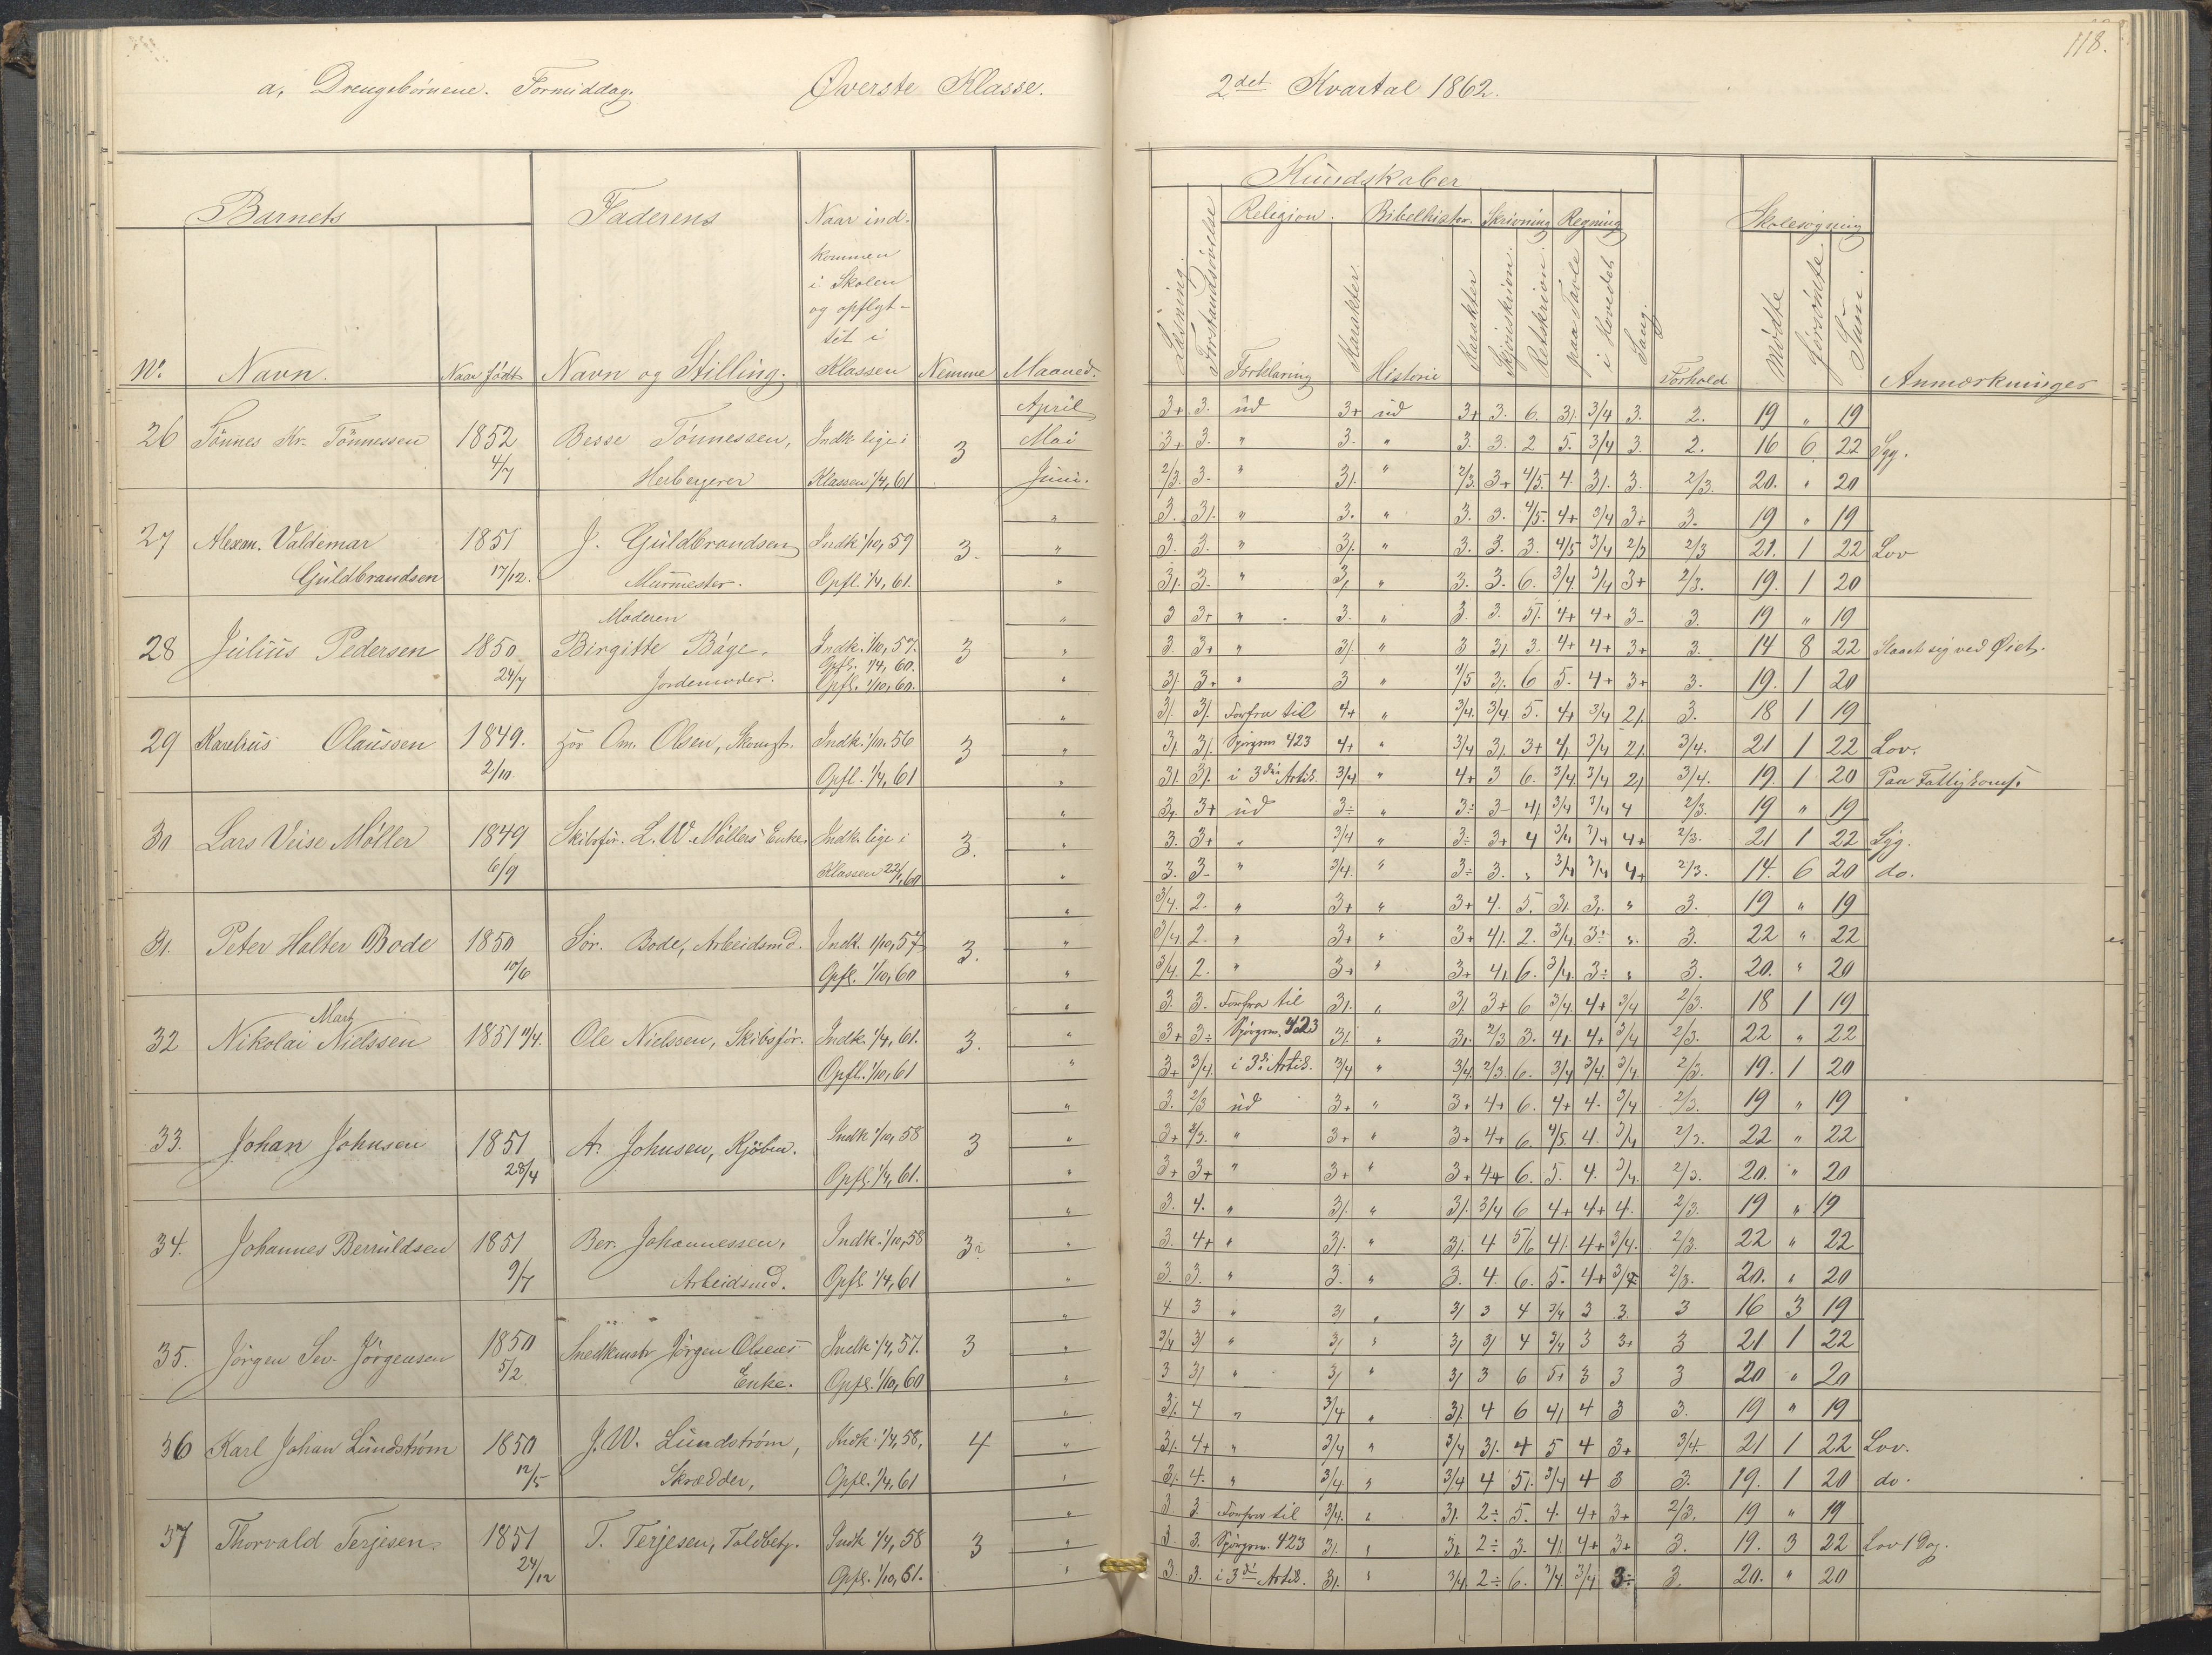 118.
a, Drengebørnene. Formiddag. Øverste Klasse. 2det Kvartal 1862.
Kundskaber
Barnets Faderens Naar ind- Religion. Bibelhistor. Skrivning Regning Skolesøgning
kommen
i Skolen
og opflyt-
tet i
No. Navn. Naar født Navn og Stilling. Klassen Nemme Maaned. Læsning. Forstandsøvelse Forklaring Karakter Historie Karakter Skjönskrivn. Retskrivn. paa Tavle i Hovedet Sang. Forhold Mødte Forsömte Sum. Anmærkninger
April 3+ 3. ud 3+ ud 3+ 3. 6. 3/. 3/4 3. 2. 19 " 19
26 Tönnes Kr. Tönnessen 1852 Besse Tönnessen, Indk. lige i 3 Mai 3+ 3. " 3. " 3. 3. 2 5. 3/4 3. 2. 16 6 22 Syg.
4/7 Herbergerer Klassen 1/4, 61 Juni. 2/3. 3. " 3/. " 2/3. 3+ 4/5. 4. 3/. 3. 2/3. 20. " 20
" 3. 3/. " 3. " 3. 3. 4/5. 4+ 3/4 3+ 3. 19 " 19
27 Alexan. Valdemar 1851 J. Guldbrandsen Indk 1/10, 59 3. " 3. 3. " 3/. " 3. 3. 3. 4/5 3/4 2/3 2/3 21. 1 22 Lov
Guldbrandsen 17/12. Murmester. Opfl. 1/4, 61. " 3/. 3. " 3/. " 3. 3. 6. 3/4. 3/4 3+ 2/3. 19. 1 20
Moderen " 3 3+ " 3. " 3. 3. 5/. 4+ 4+ 3- 3. 19 " 19
28 Julius Pedersen 1850 Birgitte Båge, Indk. 1/10, 57. 3 " 3. 3+ " 3/. " 3 3/. 3. 4+ 4+ 3+ 3. 14 8 22 Slaaet sig ved Øiet.
Opfl. 1/4, 60.
24/7 Jordemoder. Opfl. 1/10, 60. " 3/. 3+ " 3 " 4/5 3/. 6 5. 4+ 3+ 3. 19. 1 20
" 3/. 3/. Forfra til 4+ " 3/4. 3/4. 5. 4+ 3/4 2/. 3. 18 1 19
29 Karelius Olaussen 1849. hos Om. Olsen, Indk. 1/10. 56 3 " 3/. 3/. Spörgsm 423 4+ " 3/4 3/. 3+ 4/. 3/4 2/. 3/4. 21 1 22 Lov.
2/10. Opfl. 1/4, 61 " 3/. 3/. i 3die Artik. 3/4 " 4+ 3 6. 3/4 3/4 2/. 3/4. 19. 1 20 Paa
" 3/. 3+ ud 3÷ " 3÷ 3- 4/. 3/4 3/4 4 2/3. 19 " 19
30 Lars Veise Möller 1849 Skibsför. L. W. Möllers Enke. Indk. lige i 3. " 3. 3+ " 3/4 " 3÷ 3+ 4 3/4 3/4 4+ 2/3. 21 1 22 Syg.
6/9 Klassen 60 " 3. 3- " 3/4. " 3÷ 3. " 3/4 3/4 4+ 2/3. 14. 6 20 do.
" 3/4. 2. " 3+ " 3+ 4. 5. 3/. 3/. " 3. 19 " 19
31. Peter Halter Bode 1850 Sör. Bode, Arbeidsmd. Indk. 1/10, 57 3. " 3/4. 2. " 3+ " 3+ 4/. 2. 3/4 3÷ " 3. 22 " 22
10/6 Opfl. 1/10, 60 " 3/4. 2. " 3+ " 3+ 4/. 6. 3/4. 3÷ " 3. 20. " 20
Mart " 3. 3. Forfra til 3/. " 3/. 3+ 6 3/4. 4+ 3/4 2/3. 18 1 19
32 Nikolai Nielssen 1851 Ole Nielssen, Skibsför. Indk. 1/4, 61. 3. " 3+ 3÷ Spörgsm. 423 3/. " 3/. 2/3 3. 4/. 4+ 3/4 2/3. 22 " 22
Opfl. 1/10, 61 " 3+ 3/4. i 3die Artik. 3/4 " 3/4. 2/3. 6. 3/4 3/4. 3/4. 2/3. 19. 1 20
" 3. 2/3 ud 3+ " 3+ 4+ 6. 4+ 4. 3/4 2/3. 19 " 19
33. Johan Johnsen 1851 A. Johnsen, Kjöbm. Indk 1/10, 58 3 " 3+ 2/3. " 3+ " 3+ 4+ 6. 4/5 4. 3/4 2/3. 22 " 22
28/4 Opfl. 1/4, 61. " 3+ 3+ " 3+ " 3+ 4+ 6. 5. 4. 3/4. 2/3. 20. " 20
" 3. 4. " 3/. " 3/. 3/4 6 4+ 4+ 4. 2/3. 19 " 19
34. Johannes Berruldsen 1851 Ber. Johannessen, Indk. 1/10, 58 3. " 3. 4+ " 3/. " 3/. 4 5/6 4/. 4+ 3/4. 2/3. 22 " 22
9/7 Arbeidsmd. Opfl. 1/4, 61 " 3. 3. " 3. " 3. 4. 6. 5. 4+ 3/4 2/3. 20. " 20
" 4 3 " 3/ " 3/ 3 4 3/4 3 3. 3 16 3 19
35. Jörgen Sev. Jörgensen 1850 Snedkmstr Jörgen Olsens Indk. 1/4, 57. 3 " 3/4 3/ " 3/ " 3/ 3/ 4 3/4 3 3+ 3 21 1 22
5/2 Enke. Opfl. 1/10, 60 " 3 3/ " 3/ " 3/ 3 6 5+ 3 3 3 20 " 20
" 3/. 4 " 3/4 " 3/. 4 6 4/. 4 3 3. 19 " 19
36 Karl Johan Lundström 1850 J. W. Lundström, Indk. 1/4, 58, 4 " 3/. 4+ " 3/4 " 3/4 3/. 4 5 4 3+ 3/4. 21 1 22 Lov.
12/5 Skrædder, Opfl. 1/4, 61 " 3/. 4. " 3/4 " 3/4 4 5/. 3/4 4 3 3. 19. 1 20 do.
" 3 3. Forfra til 3/4. " 3/. 2÷ 5. 4. 4+ 3+ 2/3. 19 " 19
37 Thorvald Terjesen 1851 T. Terjesen, Toldbetj. Indk 1/4, 58 3 " 3 3. Spörgsm. 423 3/. " 3/. 2÷ 3. 4/. 4+ 3+ 3. 19. 3 22 Lov 1 Dag.
24/12 Opfl. 1/10, 61. " 3. 3. i 3die Artik. 3/. " 3/4. 2÷ 6. 3/4. 3/4 3÷ 3. 20. " 20